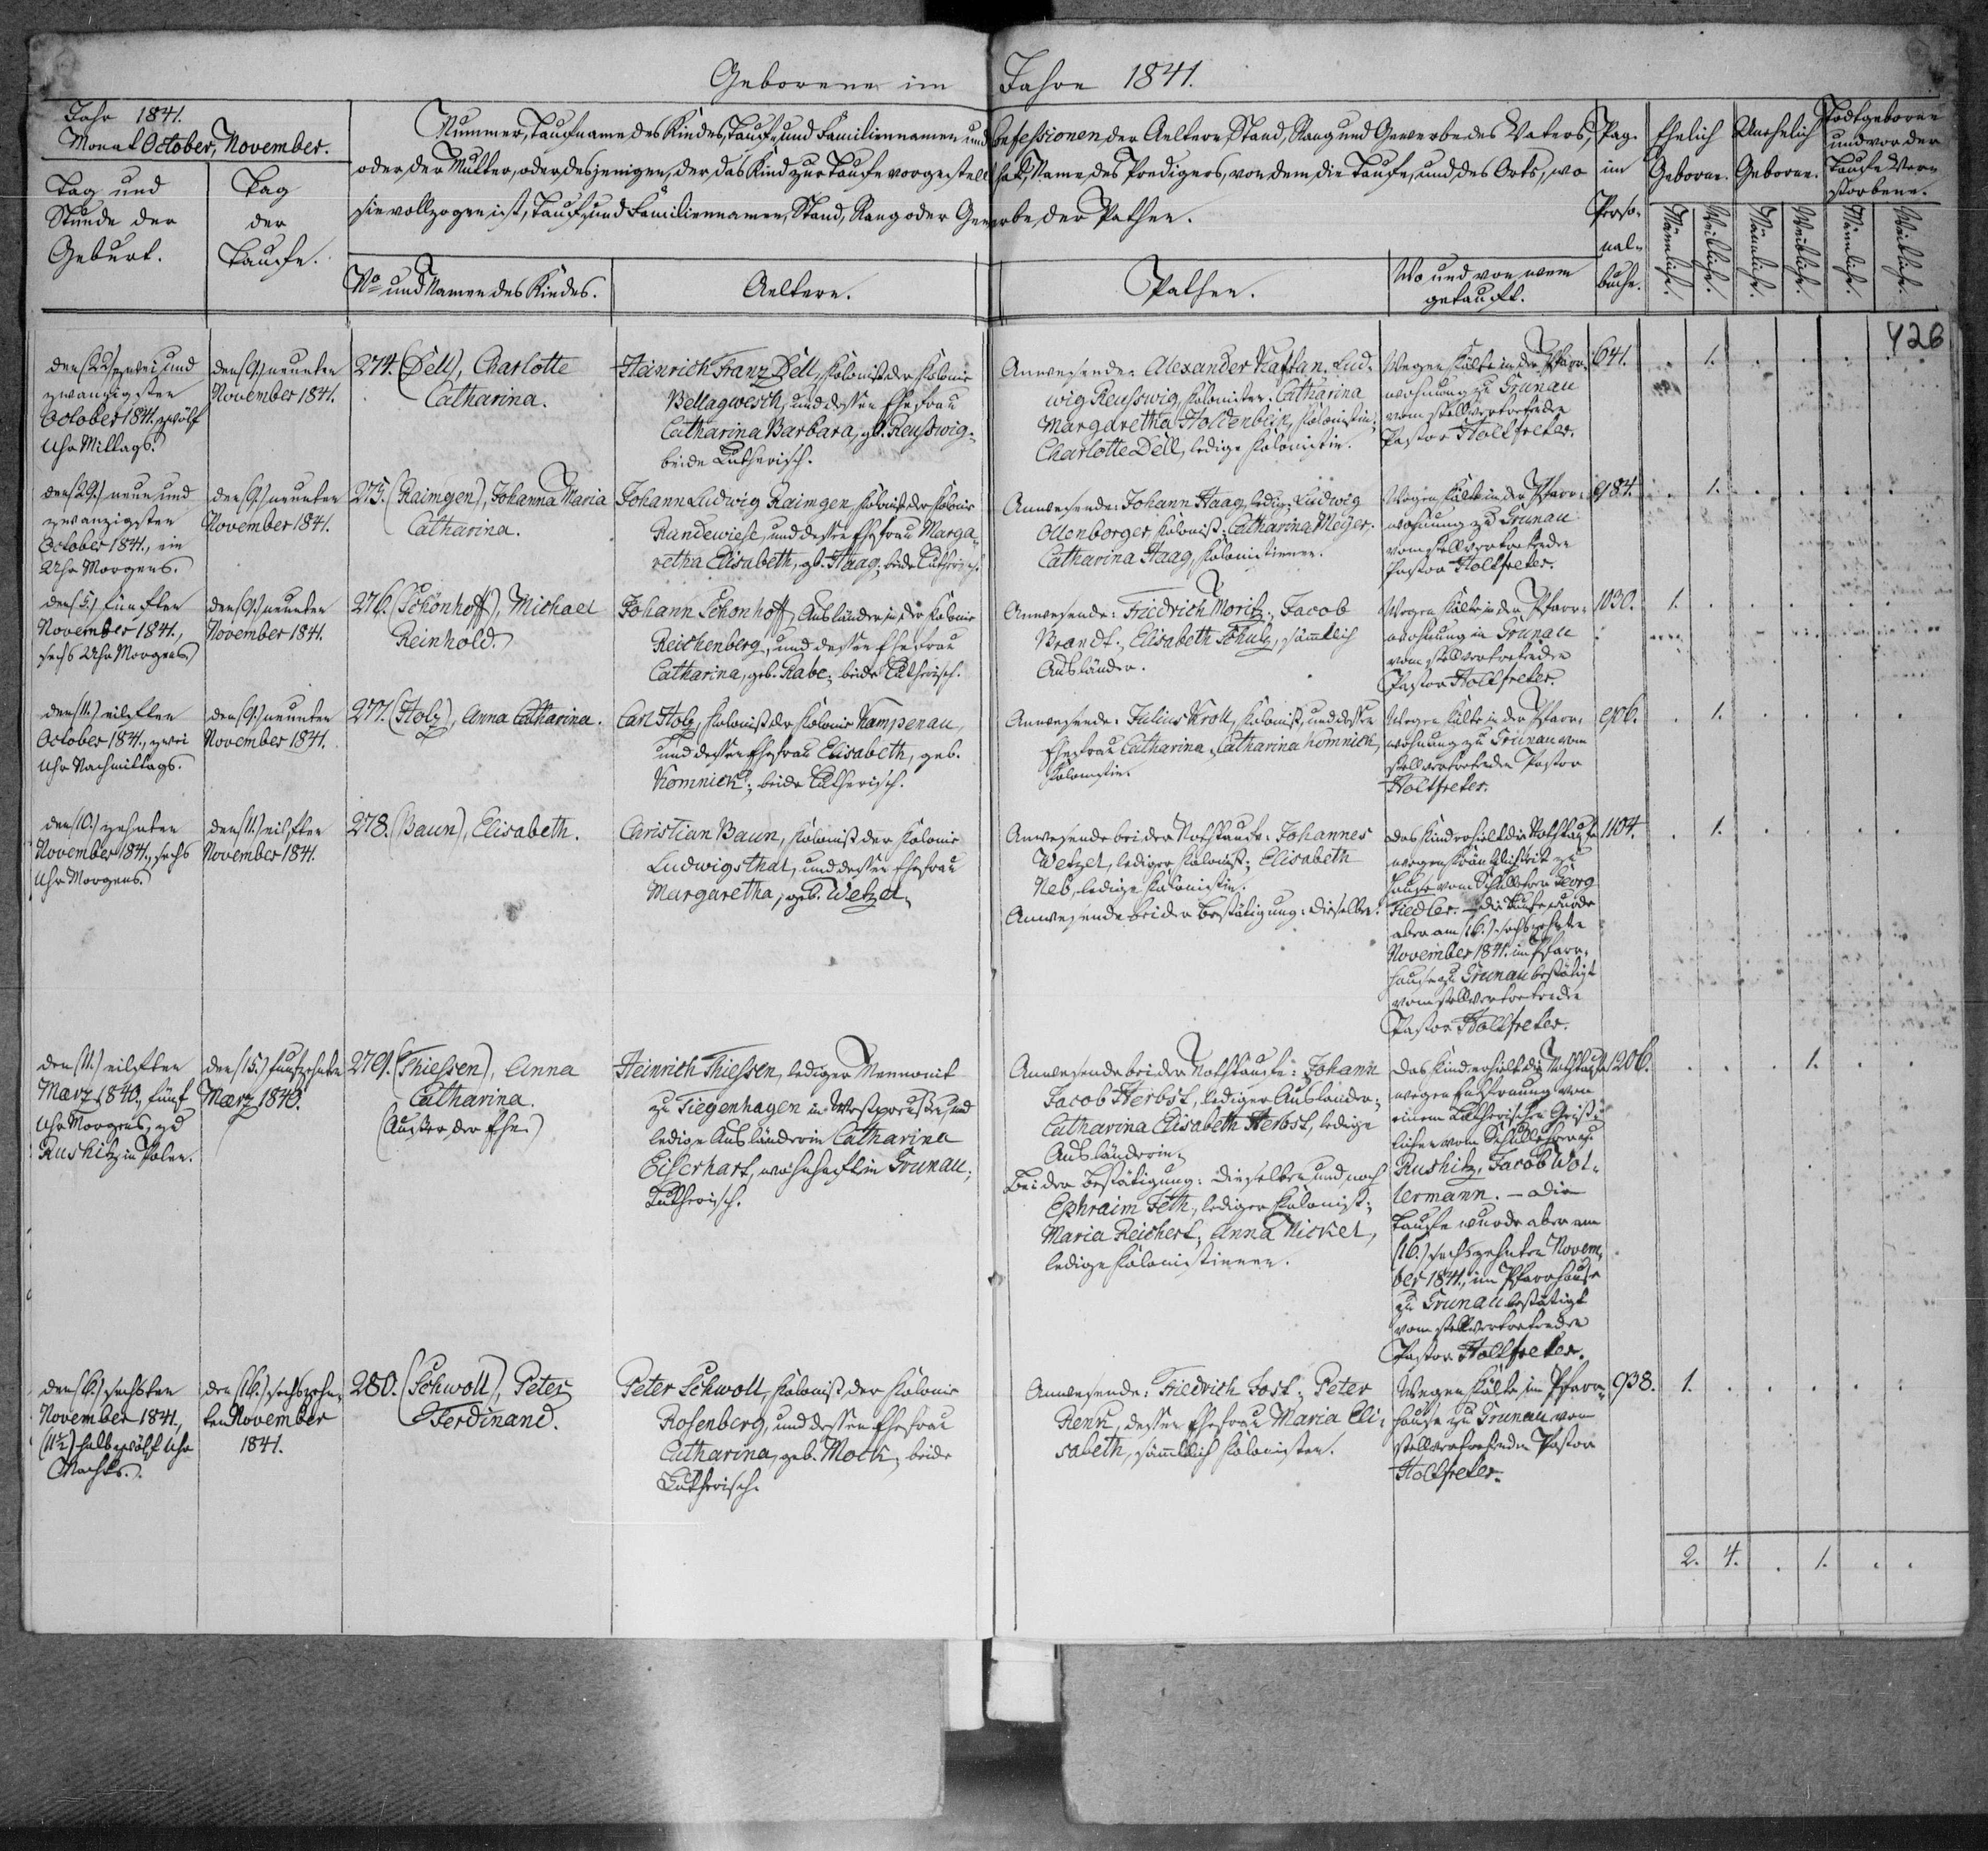 Geborene im Jahre 1841.
Jahr 1841.
Monat October, November.
Tag und
Stunde der
Geburt.
Tag
der
Taufe.
Nummer, Taufname des Kindes, Tauf- und Familiennamen und Confessionen der Aeltern, Stand, Rang und Gewerbe des Vaters,
oder der Mutter, oder desjenigen, der das Kind zur Taufe vorgestellt hat, Name des Predigers, von dem die Taufe, und des Orts, wo
sie vollzogen ist, Tauf- und Familiennamen, Stand, Rang oder Gewerbe der Pathen.
No und Namen des Kindes.
Aeltern.
Pathen.
Wo und von wem
getauft.
Pag.
im
Perso-
nal-
buche.
Ehelich
Geborne.
Unehelich
Geborne.
Todtgeborne
und vor der
Taufe Ver-
storbene.
Männliche.
Weibliche.
Männliche.
Weibliche.
Männliche.
Weibliche.
426
den (22) zwei und
zwanzigsten
October 1841. zwölf
Uhr Mittags.
den (9.) neunten
November 1841.
274. (Dell), Charlotte
Catharina.
Heinrich Franz Dell, Kolonist der Kolonie
Bellagwesch, und dessen Ehefrau
Catharina Barbara, gb. Reußwig;
beide Lutherisch.
Anwesende: Alexander Kaftan. Lud-
wig Reußwig, Kolonisten. Catharina
Margaretha Holdenbein, Kolonistin;
Charlotte Dell, ledige Kolonistin.
Wegen Kälte in der Pfarr-
wohnung zu Grunau
vom stellvertretenden
Pastor Holtfreter.
641.
1.
den (29.) neun und
zwanzigsten
October 1841., ein
Uhr Morgens.
den (9.) neunten
November 1841.
275. (Raimgen), Johanna Maria
Catharina.
Johann Ludwig Raimgen, Kolonist der Kolonie
Randewiese, und dessen Ehefrau Marga-
retha Elisabeth, gb. Haag; beide Lutherisch.
Anwesende: Johann Haag, ledig; Ludwig
Ollenborger, Kolonist; Catharina Meijer,
Catharina Haag, Kolonistinnen.
Wegen Kälte in der Pfarr-
wohnung zu Grunau
vom stellvertretenden
Pastor Holtfreter.
984.
1.
den (5.) fünften
November 1841.,
sechs Uhr Morgens.
den (9.) neunten
November 1841.
276. (Schönhoff), Michael
Reinhold.
Johann Schönhoff, Ausländer in der Kolonie
Reichenberg, und dessen Ehefrau
Catharina, geb. Rabe; beide Lutherisch.
Anwesende: Friedrich Moritz; Jacob
Brandt; Elisabeth Schulz, sämmtlich
Ausländer.
Wegen Kälte in der Pfarr-
wohnung in Grunau
vom stellvertretenden
Pastor Holtfreter.
1030.
1.
den (11.) eilften
October 1841., zwei
Uhr Nachmittags.
den (9.) neunten
November 1841.
277. (Holz), Anna Catharina.
Carl Holz, Kolonist der Kolonie Kampenau,
und dessen Ehefrau Elisabeth, geb.
Komnick; beide Lutherisch.
Anwesende: Julius Kroll, Kolonist, und dessen
Ehefrau Catharina; Catharina Komnick,
Kolonistin.
Wegen Kälte in der Pfarr-
wohnung zu Grunau vom
stellvertretenden Pastor
Holtfreter.
1.
den (10.) zehnten
November 1841., sechs
Uhr Morgens.
den (11.) eilften
November 1841.
278. (Baun), Elisabeth.
Christian Baun, Kolonist der Kolonie
Ludwigsthal, und dessen Ehefrau
Margaretha, geb. Wetzel.
Anwesende bei der Nothtaufe: Johannes
Wetzel, lediger Kolonist; Elisabeth
Neb, ledige Kolonistin.
Anwesende bei der Bestätigung: dieselben.
Das Kind erhielt die Nothtaufe
wegen Kränklichkeit zu
Hause vom Schullehrer Georg
Fiedler. – Die Taufe wurde
aber am (16.) sechszehnten
November 1841. im Pfarr-
hause zu Grunau bestätigt
vom stellvertretenden
Pastor Holtfreter.
1104.
1.
den (11.) eilften
März 1840., fünf
Uhr Morgens, zu
Rushitz in Polen.
den (15.) funfzehnten
März 1840.
279. (Thießen), Anna
Catharina.
(Außer der Ehe.)
Heinrich Thießen, lediger Mennonit
zu Tiegenhagen in Westpreußen, und
ledige Ausländerin Catharina
Eißerhart, wohnhaft in Grunau;
Lutherisch.
Anwesende bei der Nothtaufe: Johann
Jacob Herbst, lediger Ausländer;
Catharina Elisabeth Herbst, ledige
Ausländerin;
Bei der Bestätigung: dieselben und noch
Ephraim Feth, lediger Kolonist;
Maria Reichert; Anna Nickel,
ledige Kolonistinnen.
Das Kind erhielt die Nothtaufe
wegen Entfernung von
einem Lutherischen Geist-
lichen vom Schullehrer zu
Rushitz, Jacob Wol-
lermann. – Die
Taufe wurde aber am
(16.) sechszehnten Novem-
ber 1841., im Pfarrhause
zu Grunau bestätigt
vom stellvertretenden
Pastor Holtfreter.
1206.
1.
den (6.) sechsten
November 1841.,
(11½) halb zwölf Uhr
Nachts.
den (16.) sechszehn-
ten November
1841.
280. (Schwoll), Peter
Ferdinand.
Peter Schwoll, Kolonist der Kolonie
Rosenberg, und dessen Ehefrau
Catharina, geb. Mock; beide
Lutherisch.
Anwesende: Friedrich Jost; Peter
Renk, dessen Ehefrau Maria Eli-
sabeth, sämmtlich Kolonisten.
Wegen Kälte im Pfarr-
hause zu Grunau vom
stellvertretenden Pastor
Holtfreter.
938.
1.
2. 4. . 1. . .